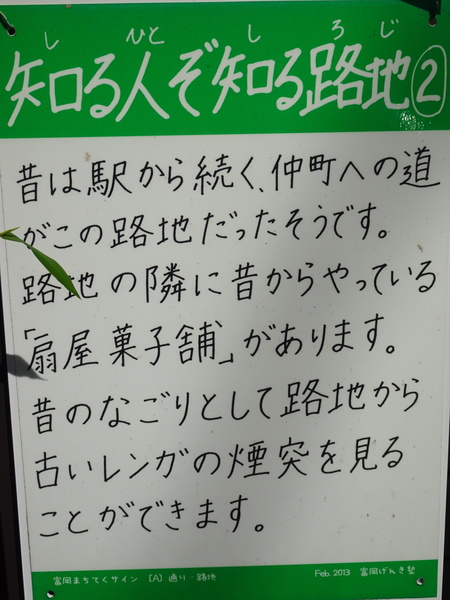 しひとしろじ
知る人ぞ知る路地②
昔は駅から続く、仲町への道
がこの路地だったそうです。
路地の隣に昔からやっている
「扇屋菓子舗」があります。
昔のなごりとして路地から
古いレンガの煙突を見る
ことができます。
富岡まちてくサイン [A] 通り・路地
Feb. 2013 富岡げんき塾